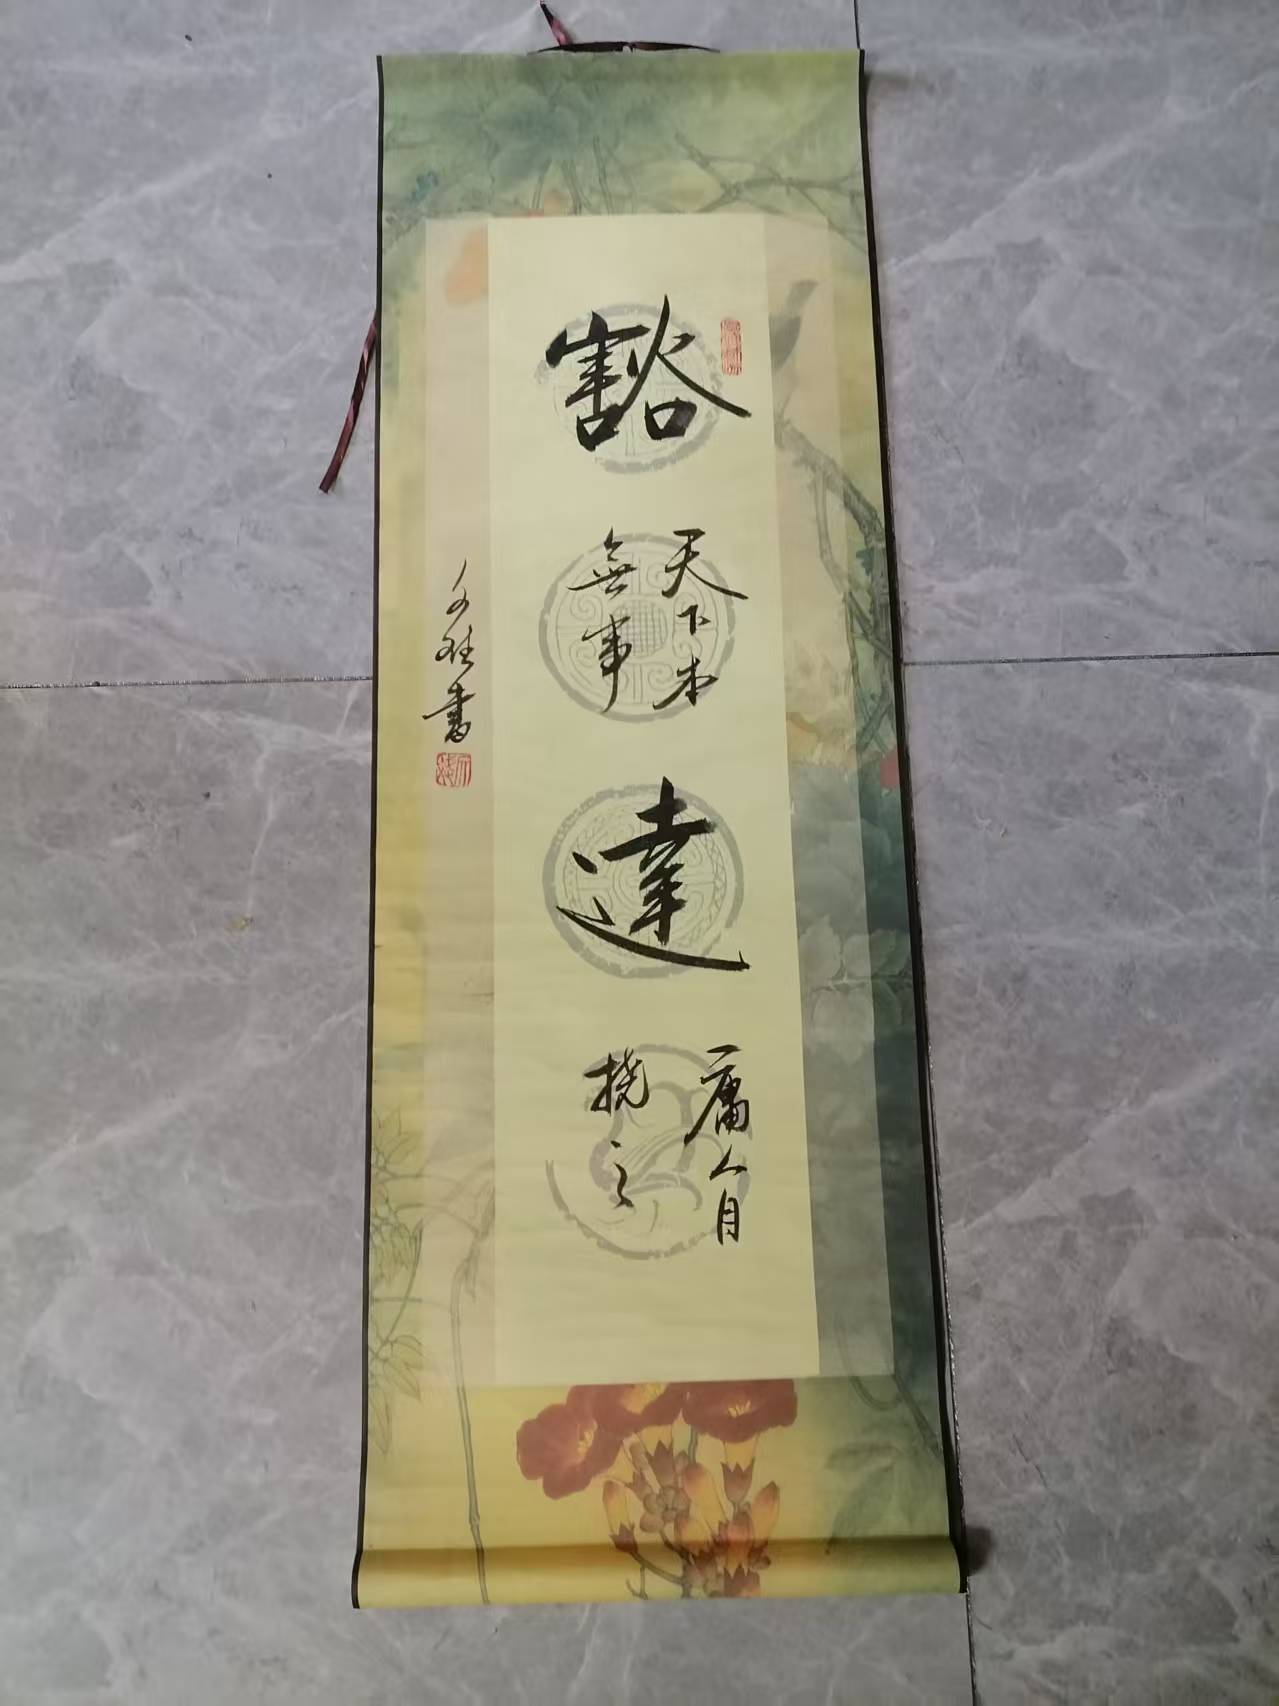 豁
天下本
無事
達
庸人自
撓之
書